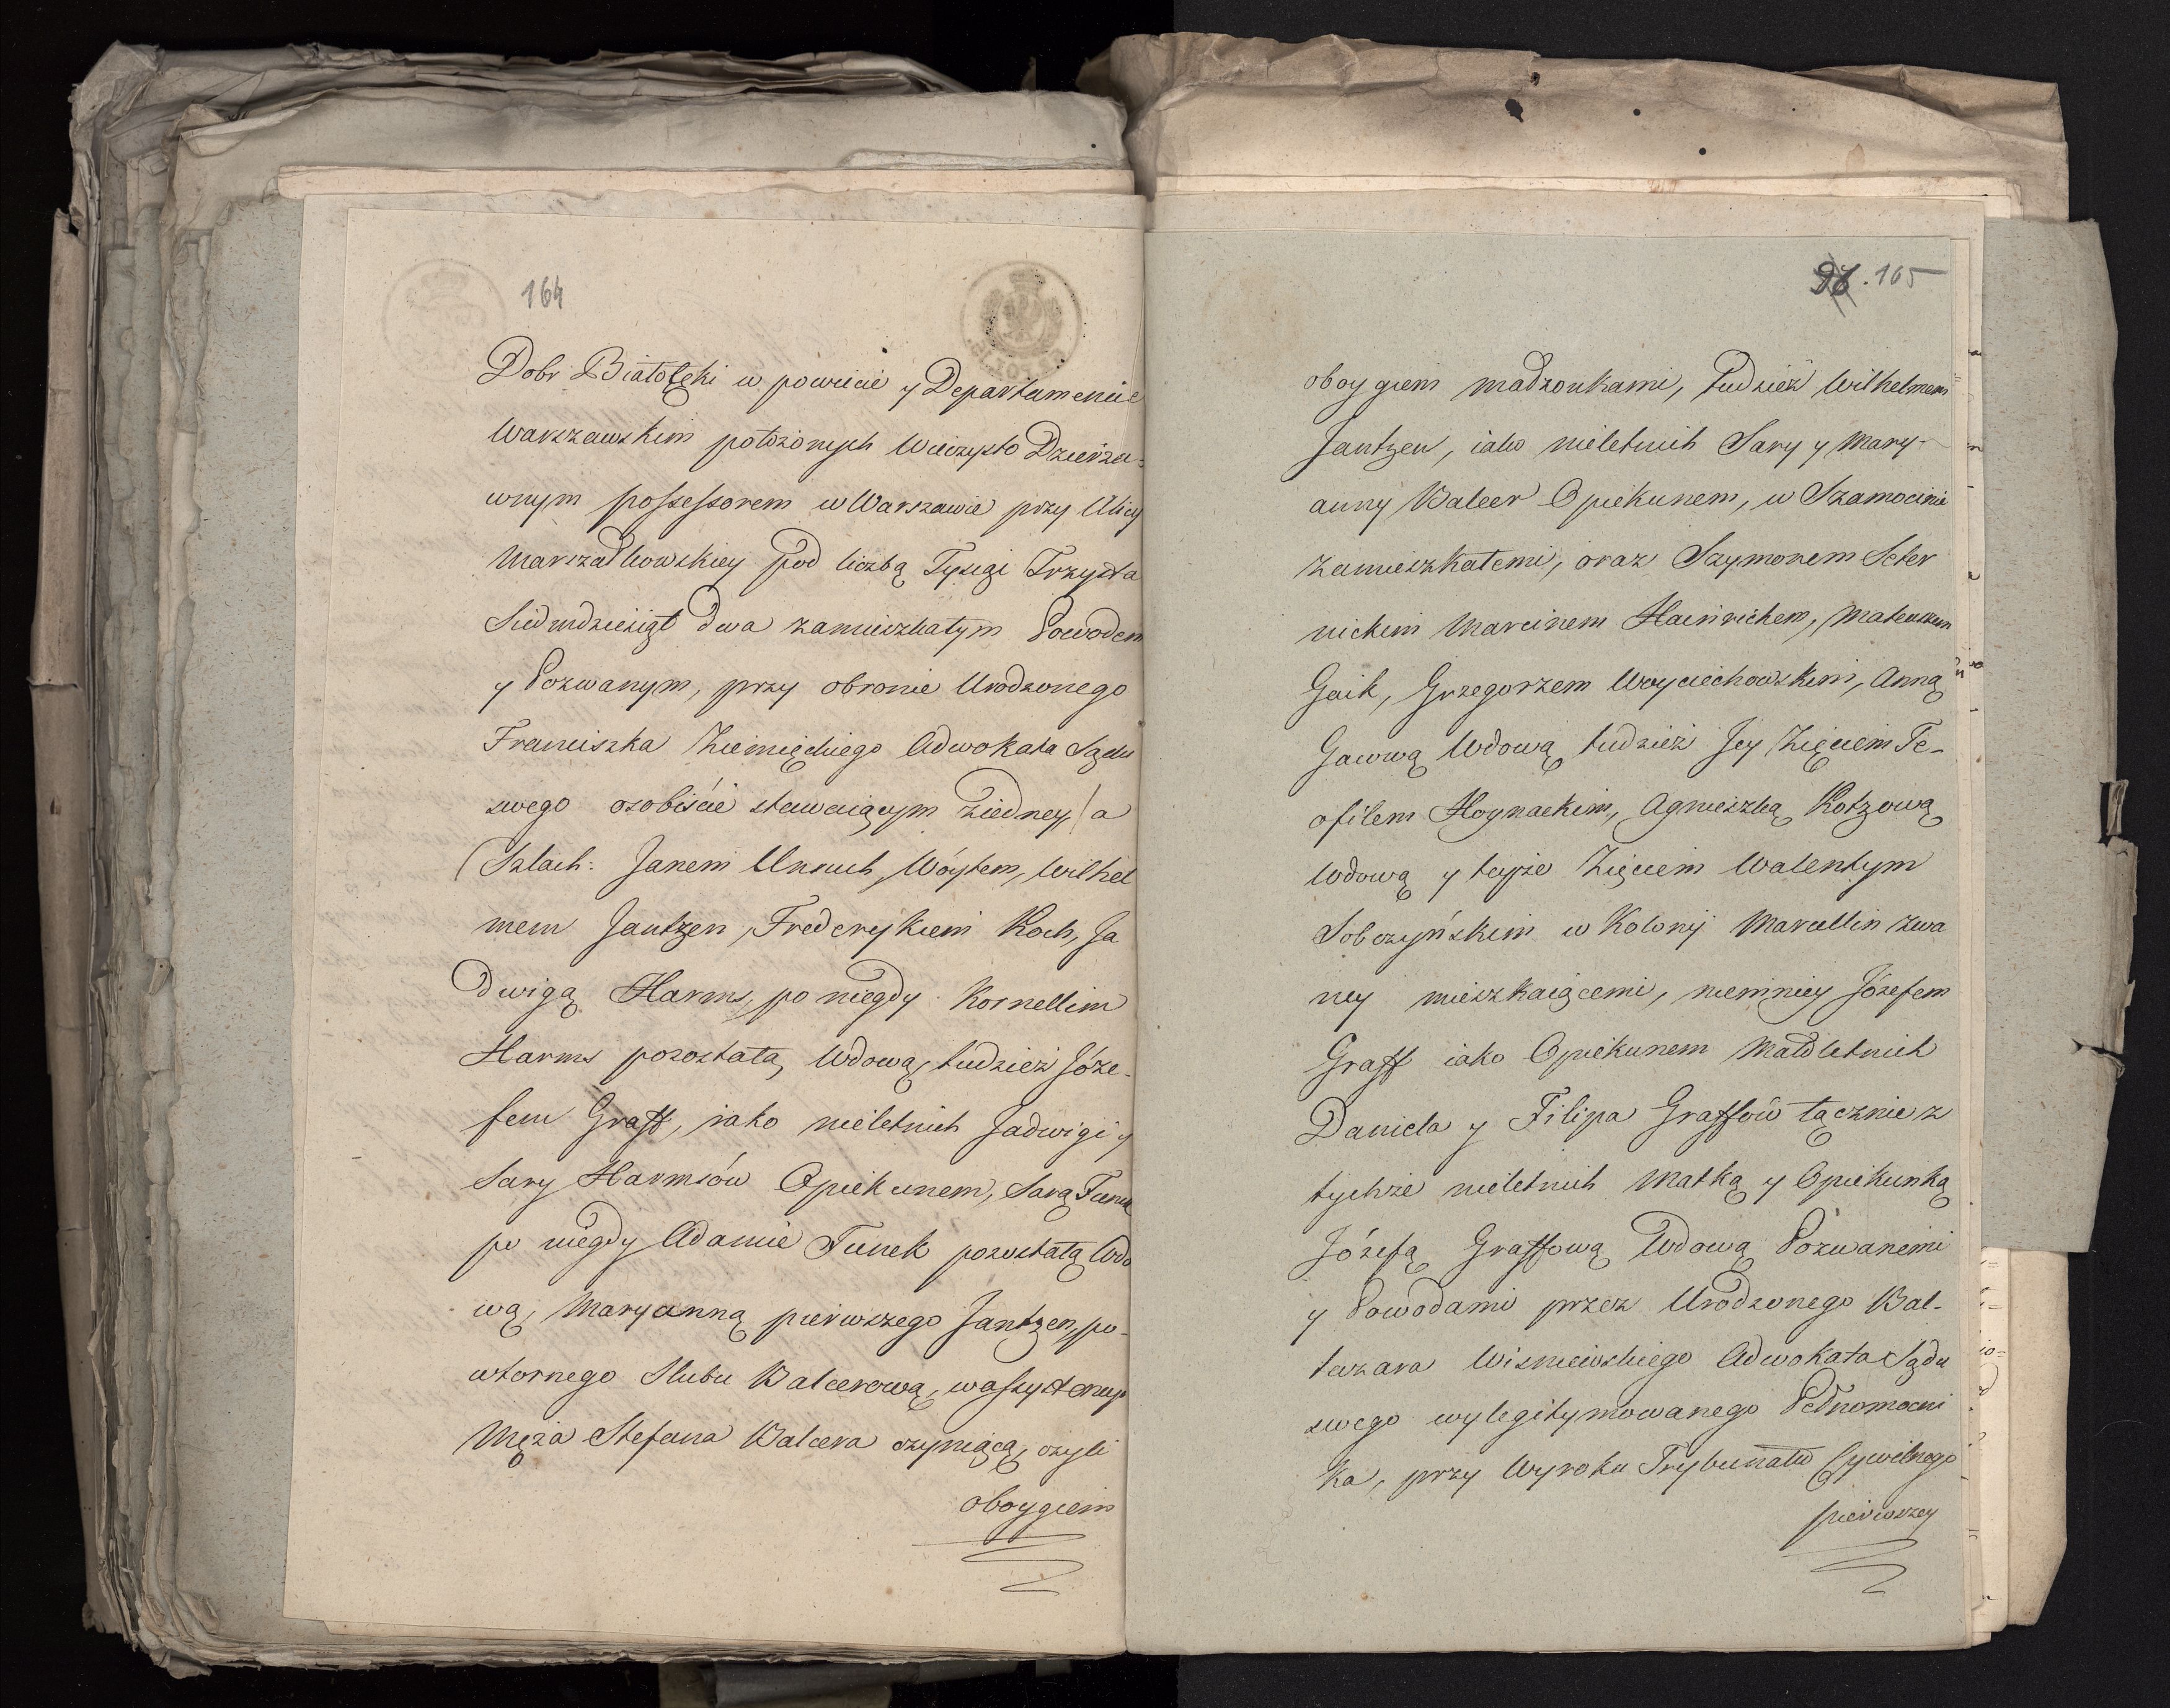 164
Dobr Białołęki w powiecie y Departamencie
Warszawskim położonych Wieczysto Dzierża=
wnym possessorem w Warszawie przy Ulicy
Marszałkowskiey pod liczbą Tysiąc Trzysta
Siedmdziesiąt dwa zamieszkałym Powodem
y Pozwanym, przy obronie Urodzonego
Franciszka Ziemięckiego Adwokata Sądu
swego osobiście stawaiącym ziedney / a
(Szlach: Janem Unruh, Wóytem, Wilhel
mem Jantzen, Fryderykiem Koch, Ja
dwigą Harms, po niegdy Kornellim
Harms pozostałą Wdową, tudzież Józe-
fem Graff, iako nieletnich Jadwigi y
Sary Harmsów Opiekunem, Sarą
po niegdy Adamie Funek pozostałą Wdo
wą, Maryanną pierwszego Jantzen, po-
wtornego Slubu Balcerową, w assystencyi
Męża Stefana Balcera czyniącą, czyli
oboygiem
165
oboygiem madzonkami, Tudzież Wilhelmem
Jantzen, iako nieletnich Sary y Mary-
anny Balcer Opiekunem, w Szamocinie
zamieszkałemi, oraz Szymonem Seter
nickim Marcinem Hainrichem, Mateuszem
Gaik, Grzegorzem Woyciechowskim, Anną
Gawwą Wdową tudzież Jey Zięciem Te-
ofilem Hoynackim, Agnieszką Kotzową
Wdową y teyże Zięciem Walentym
Sobczyńskim w Kolonij Marcellin zwa
ney mieszkaiącemi, niemniey Józefem
Graff iako Opiekunem Małoletnich
Daniela y Filipa Graffów łącznie z
tychże nieletnich Matką y Opiekunką
Józefą Graffową Wdową Pozwanemi
y Powodami przez Urodzonego Bal-
tazara Wisniewskiego Adwokata Sądu
swego wylegitymowanego Pełnomocni
ka, przy Wyroku Trybunału Cywilnego
pierwszey